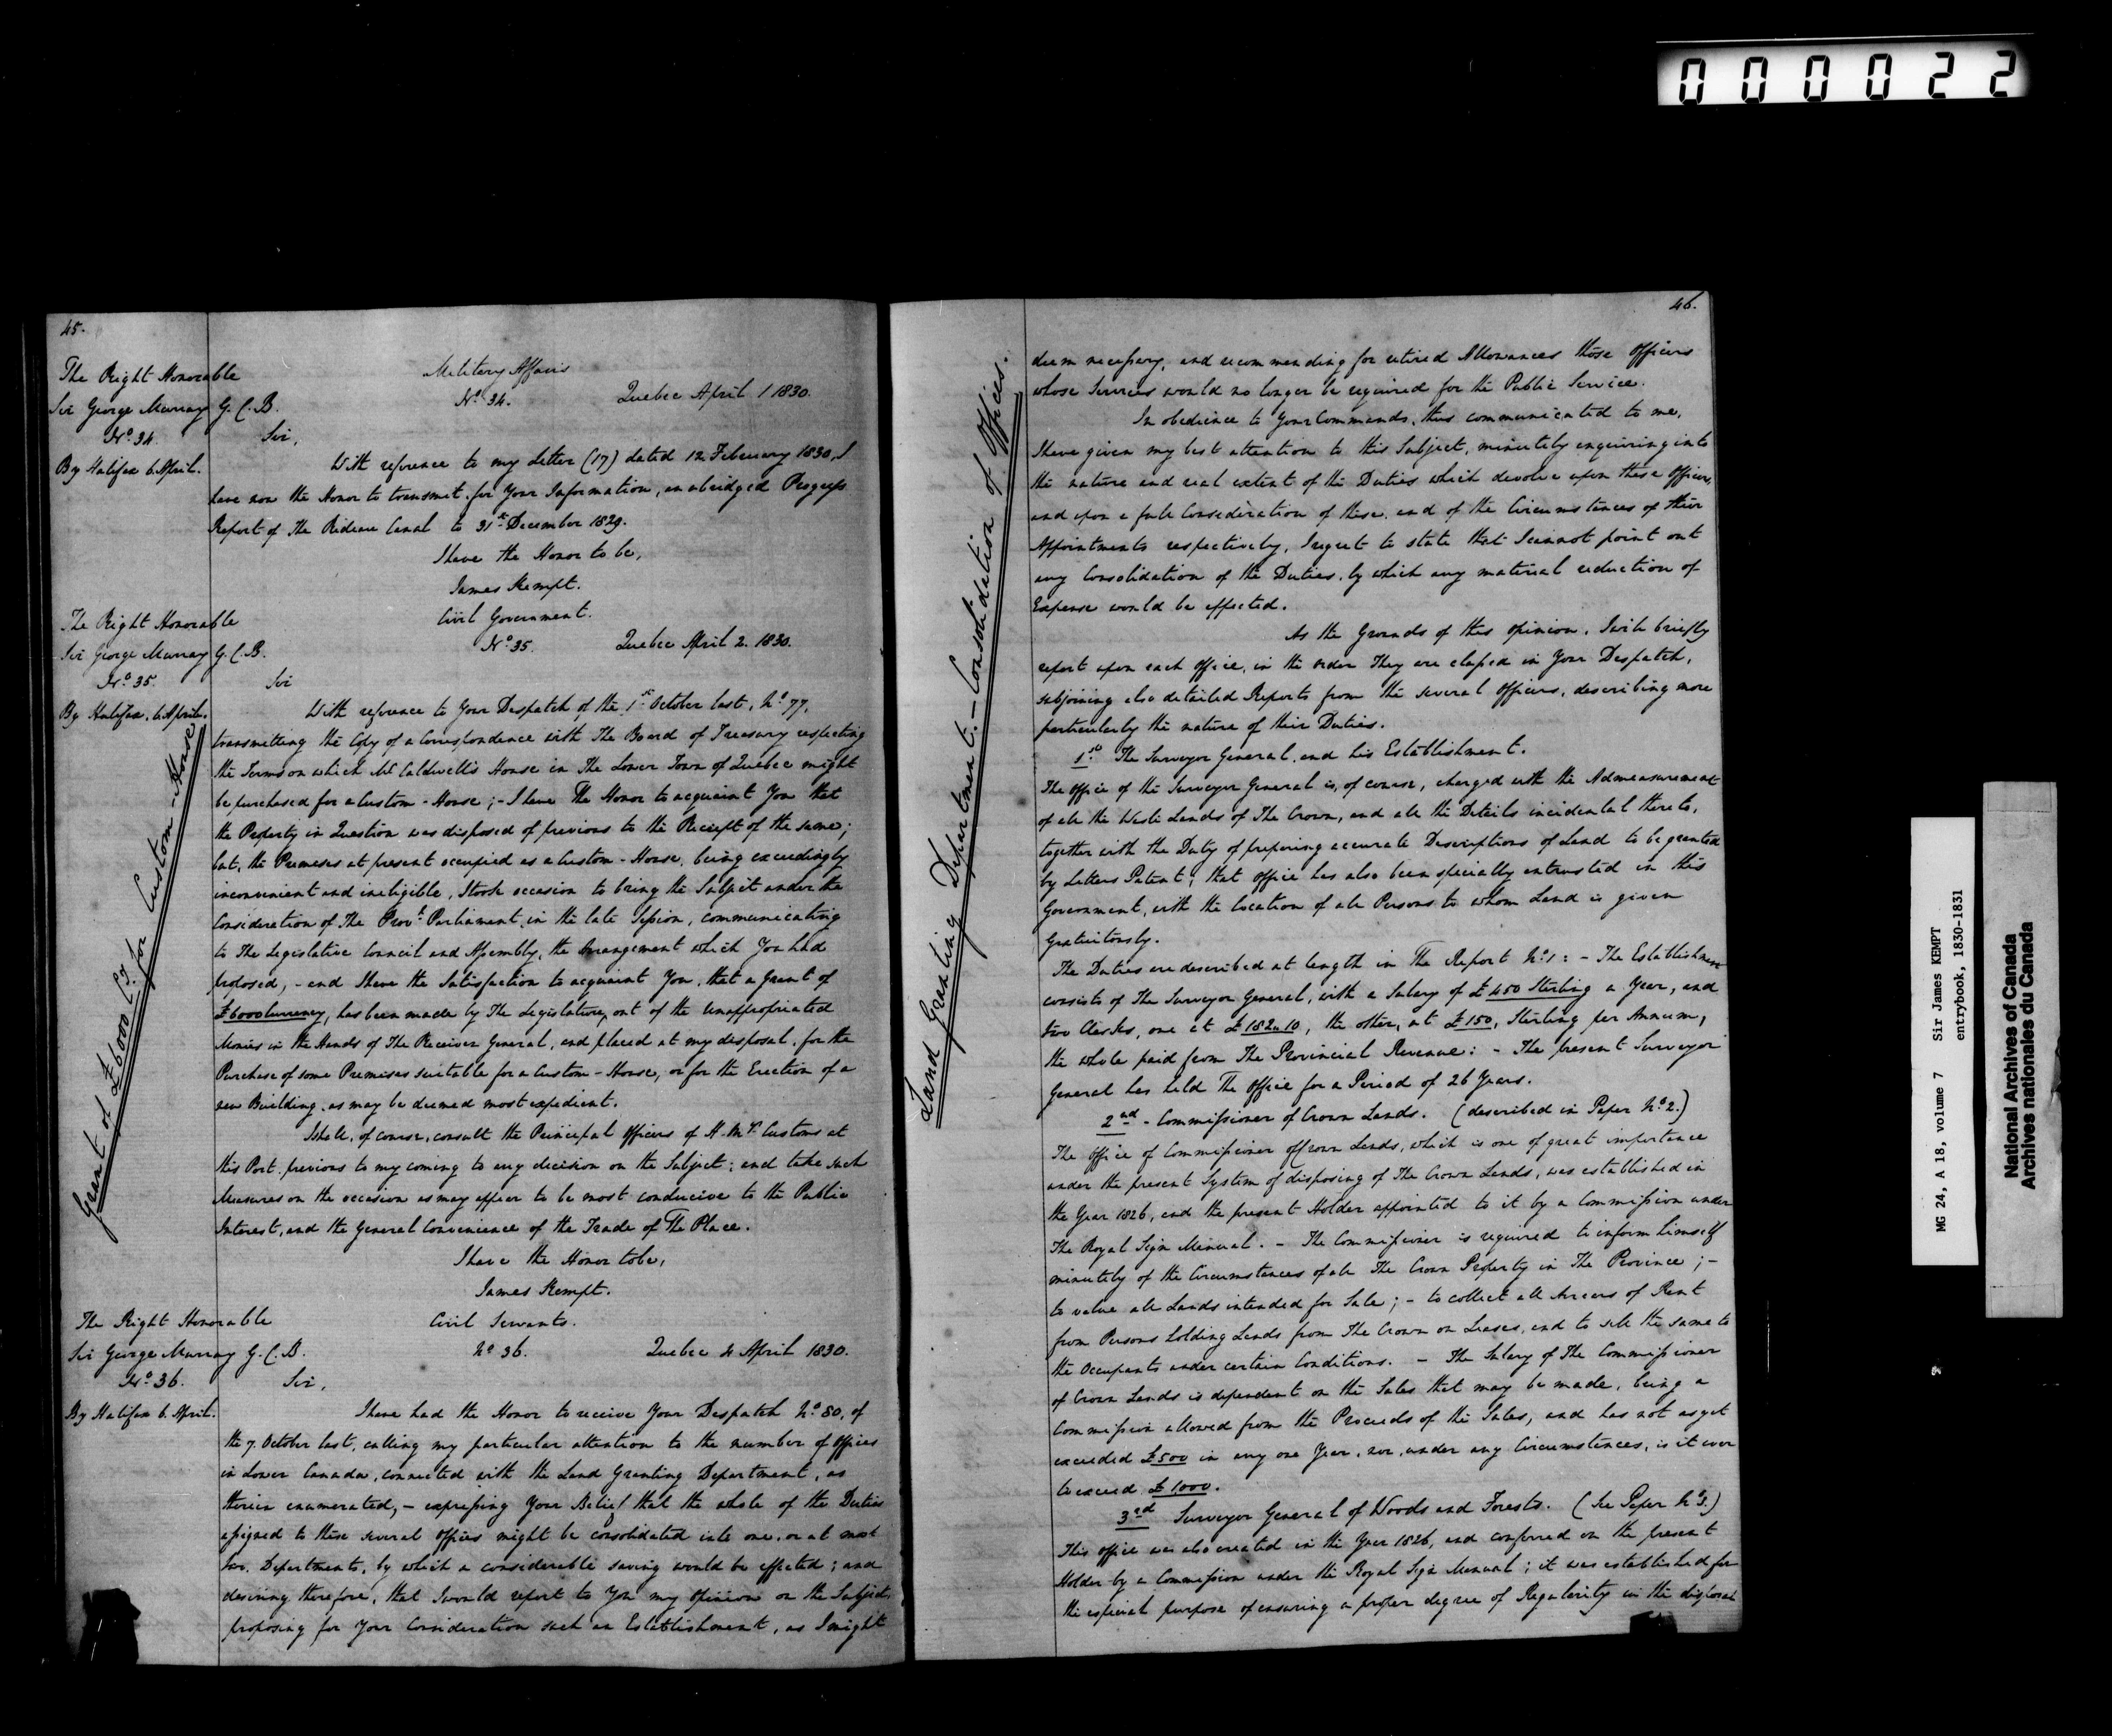 000022
45.
The Right Honorable
Sir George Murray G.C.B.
No. 34.
By Halifax 6. April.
Military Affairs
No. 34. Quebec April 1 1830.
Sir,
With reference to my Letter (17) dated 12 February 1830, I
have now the Honor to transmit for Your Information, an abridged Progress
Report of The Rideau Canal to 31st December 1829.
I have the Honor to be,
James Kempt.
The Right Honorable
Sir George Murray G.C.B.
No. 35.
By Halifax, 6. April.
Grant of £6000 Cy. for Custom-House
Civil Government.
No. 35. Quebec April 2. 1830.
Sir
With reference to Your Despatch of the 1st October last, No. 77,
transmitting the Copy of a Correspondence with The Board of Treasury respecting
the Terms on which Mr. Caldwell's House in The Lower Town of Quebec might
be purchased for a Custom-House; - I have The Honor to acquaint You that
the Property in Question was disposed of previous to the Receipt of the same;
but, the Premises at present occupied as a Custom-House, being exceedingly
inconvenient and ineligible, I took occasion to bring the Subject under the
Consideration of The Provl. Parliament in the late Session, communicating
to The Legislative Council and Assembly, the Arrangement which You had
proposed, - and I have the Satisfaction to acquaint You, that a Grant of
£6000 Currency, has been made by The Legislature, out of the unappropriated
Monies in the Hands of The Receiver General, and placed at my disposal, for the
Purchase of some Premises suitable for a Custom-House, or for the Erection of a
new Building, as may be deemed most expedient.
I shall, of course, consult the Principal Officers of H.M's. Customs at
this Port, previous to my coming to any decision on the Subject; and take such
Measures on the occasion as may appear to be most conducive to the Public
Interest, and the General Convenience of the Trade of The Place.
I have the Honor to be,
James Kempt.
The Right Honorable
Sir George Murray G.C.B.
No. 36.
By Halifax 6. April.
Civil Servants.
No. 36. Quebec 4 April 1830.
Sir,
I have had the Honor to receive Your Despatch No. 80, of
the 7. October last, calling my particular attention to the number of Offices
in Lower Canada, connected with the Land Granting Department, as
therein enumerated, - expressing Your Belief that the whole of the Duties
assigned to these several Offices might be consolidated into one, or at most
two, Departments, by which a considerable saving would be effected; and
desiring therefore, that I would report to You my Opinion on the Subject,
proposing for Your Consideration such an Establishment, as I might
46.
Land Granting Department. - Consolidation of Offices.
deem necessary, and recommending for retired Allowances those Officers
whose Services would no longer be required for the Public Service.
In obedience to Your Commands, thus communicated to me,
I have given my best attention to this Subject, minutely enquiring into
the nature and real extent of the Duties which devolve upon these Officers,
and upon a full Consideration of these, and of the Circumstances of their
Appointments respectively, I regret to state that I cannot point out
any Consolidation of the Duties, by which any material reduction of
Expense would be effected.
As the Grounds of this Opinion, I will briefly
report upon each Office, in the order They are classed in Your Despatch,
subjoining also detailed Reports from the several Officers, describing more
particularly the nature of their Duties.
1st. The Surveyor General, and his Establishment.
The Office of the Surveyor General is, of course, charged with the Admeasurement
of all the Waste Lands of The Crown, and all the Details incidental thereto,
together with the Duty of preparing accurate Descriptions of Land to be granted
by Letters Patent; that Office has also been specially entrusted in this
Government, with the location of all Persons to whom Land is given
Gratuitously.
The Duties are described at length in The Report No. 1: - The Establishment
consists of The Surveyor General, with a Salary of £450 Sterling a Year, and
two Clerks, one at £182.. 10, the other, at £150, Sterling per Annum,
the whole paid from The Provincial Revenue: - The present Surveyor
General has held The Office for a Period of 26 Years.
2nd - Commissioner of Crown Lands. (described in Paper No. 2.)
The Office of Commissioner of Crown Lands, which is one of great importance
under the present System of disposing of The Crown Lands, was established in
the Year 1826, and the present Holder appointed to it by a Commission under
The Royal Sign Manual. - The Commissioner is required to inform himself
minutely of the Circumstances of all The Crown Property in The Province; -
to value all Lands intended for Sale; - to collect all Arrears of Rent
from Persons holding Lands from The Crown on Leases, and to sell the same to
the Occupants under certain Conditions. - The Salary of The Commissioner
of Crown Lands is dependent on the Sales that may be made, being a
Commission allowed from the Proceeds of the Sales, and has not as yet
exceeded £500 in any one Year, nor, under any Circumstances, is it ever
to exceed £1000.
3rd Surveyor General of Woods and Forests. (See Paper No. 3.)
This office was also created in the Year 1826, and conferred on the present
Holder by a Commission under the Royal Sign Manual; it was established for
the especial purpose of ensuring a proper degree of Regularity in the disposal
MG 24, A 18, volume 7 Sir James KEMPT
entrybook, 1830-1831
National Archives of Canada
Archives nationales du Canada